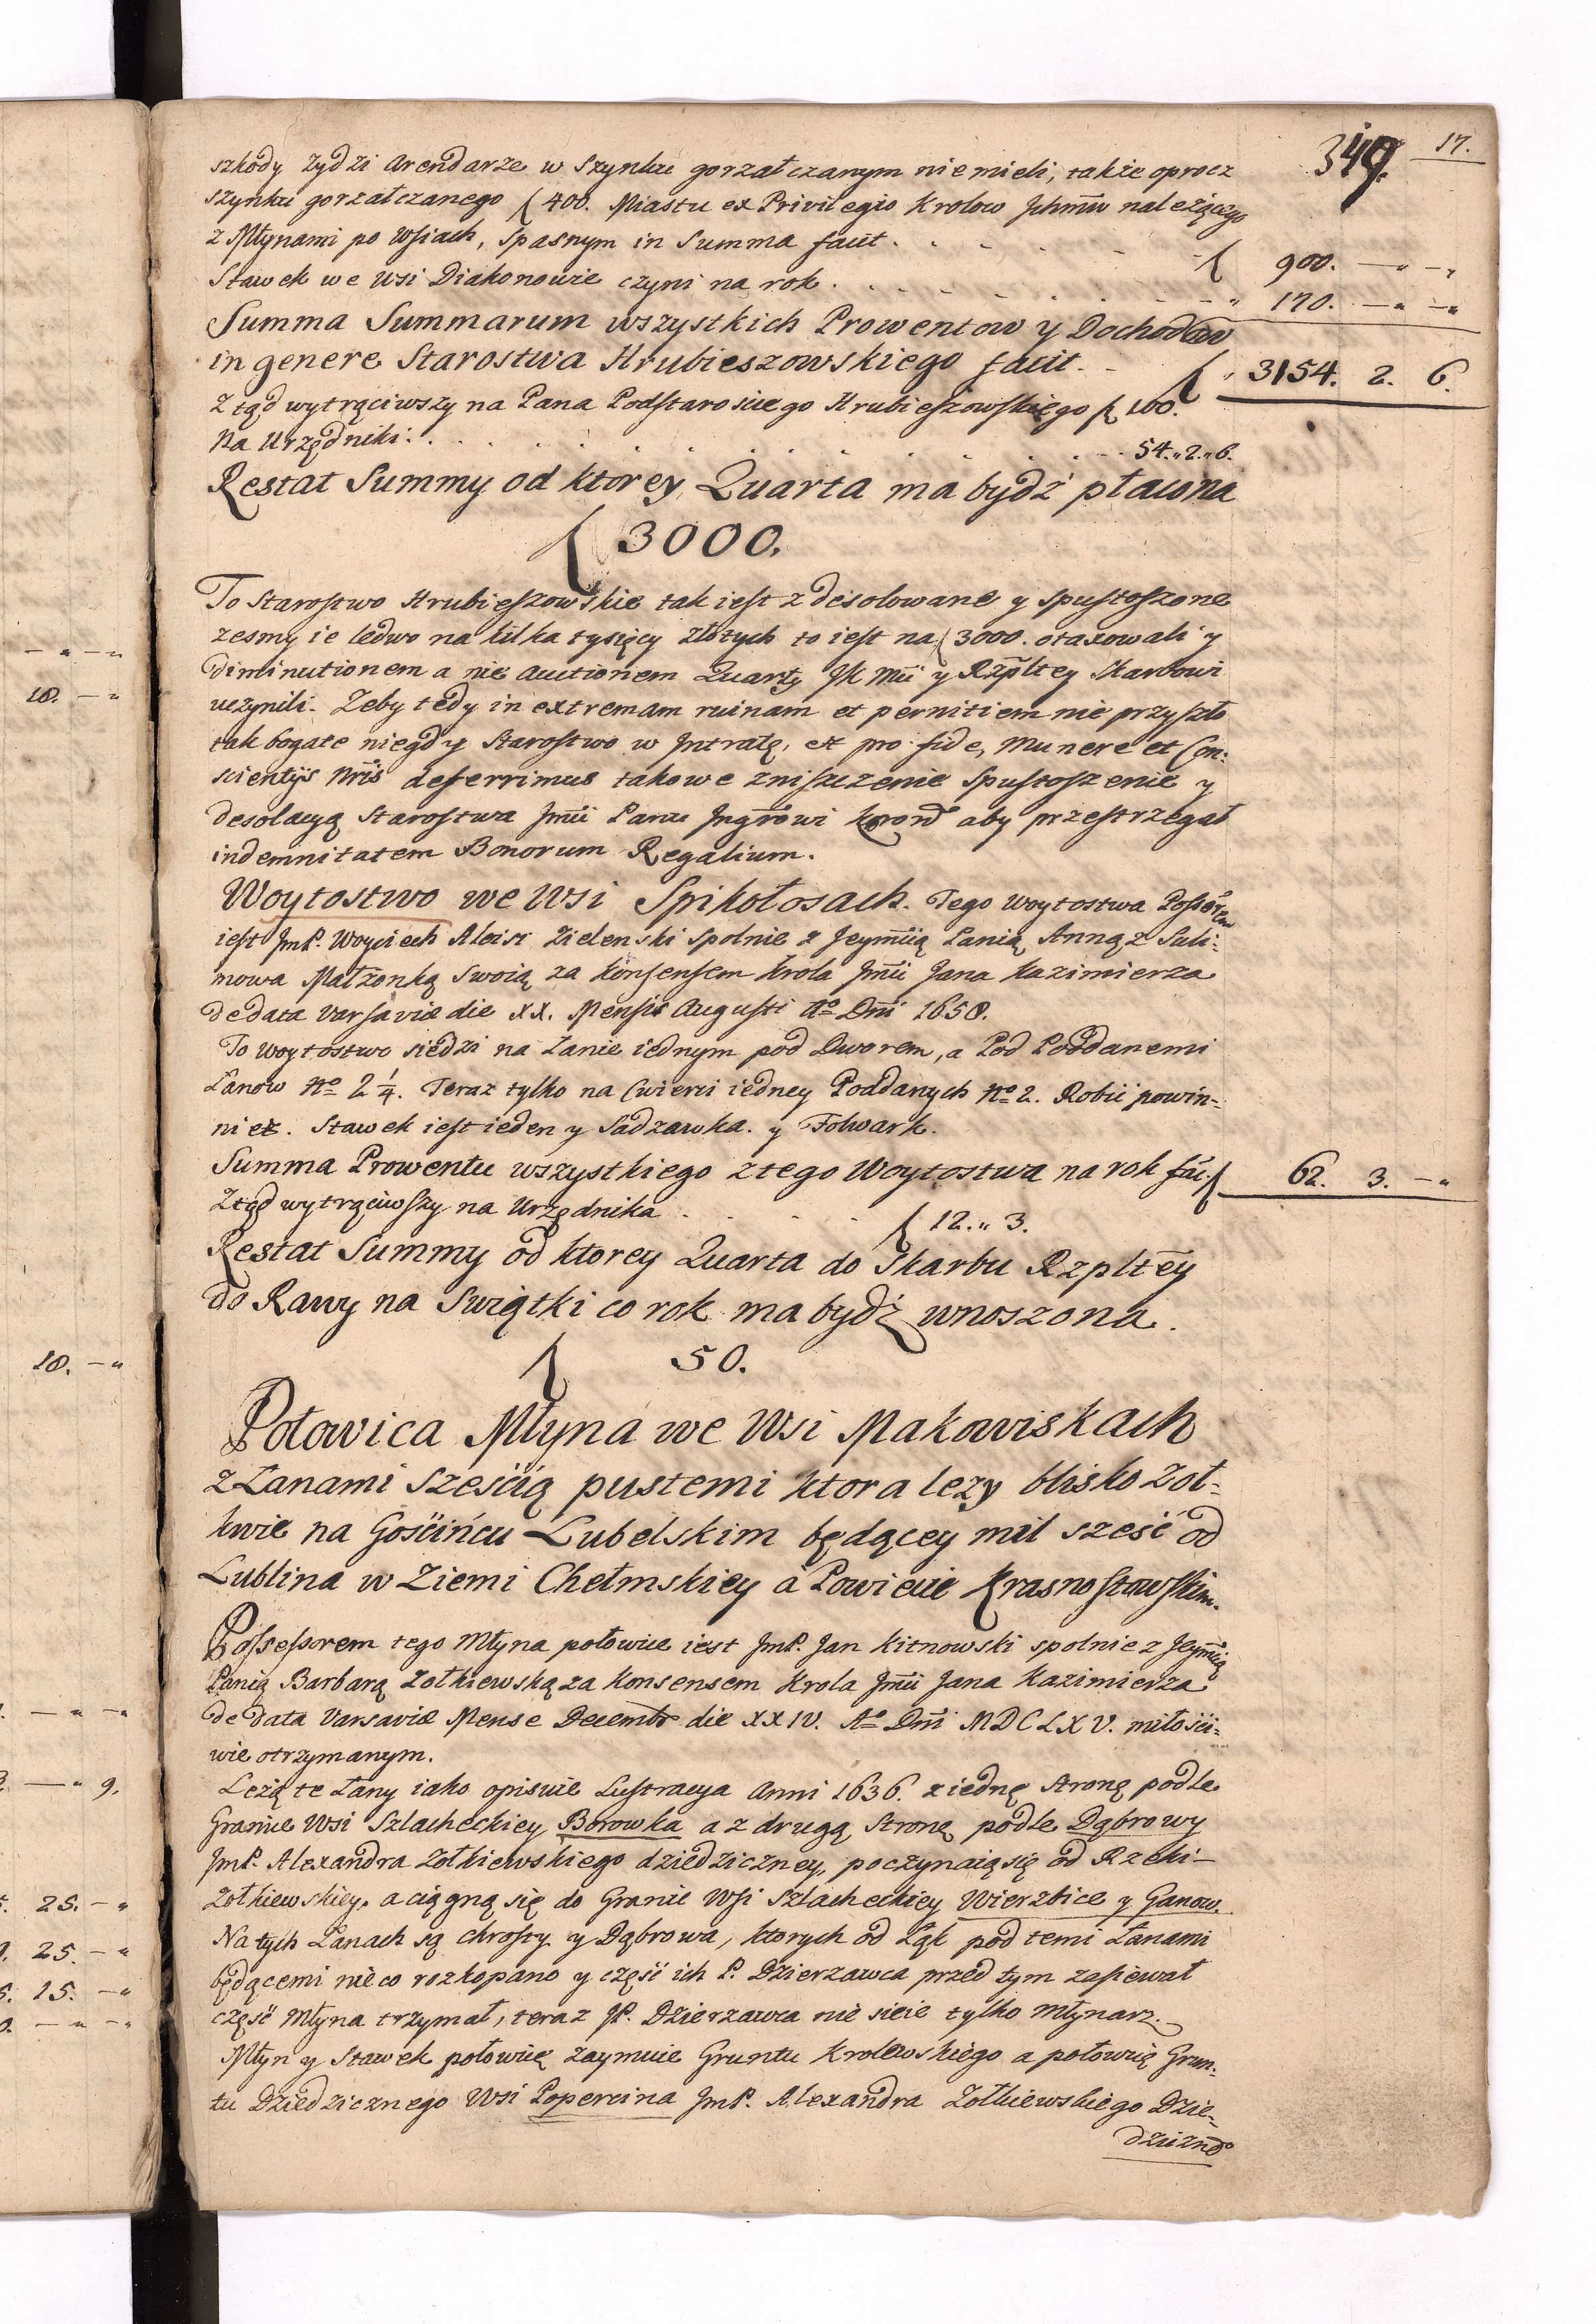 349. 17.
szkody Zydzi Arendarze w Szynku gorzałczanym niemieli, także oprocz
szynku gorzałczanego ƒ 400. Miastu ex Privilegio Krolow Ichm̃w należącego
z Młynami po Wsiach, Spasnym in Summa facit . . . . ƒ 900. — „ — „
Stawek we Wsi Diakonowie czyni na rok . . . . . „ 170. — „ — „
Summa Summarum wszystkich Prowentow y Dochodow
in genere Starostwa Hrubieszowskiego facit . - ƒ „ 3154. 2. 6.
Ztąd wytrąciwszy na Pana Podstarosciego Hrubieszowskiego ƒ 100.
Na Urzędniki: . . . . . . . . 54. „ 2. „ 6.
Restat Summy od ktorey Quarta ma bydź płacona
ƒ 3000.
To Starostwo Hrubieszowskie tak iest zdesolowane y Spustoszone
zesmy ie ledwo na kilka tysięcy Złotych to iest na ƒ 3000. otaxowali y
diminutionem a nie auctionem Quarty JK Mći y Rzp̃ltey Skarbowi
uczynili. Zeby tedy in extremam ruinam et pernitiem nie przyszło
tak bogate niegdy Starostwo w Intratę, et pro fide, Munere et Con:
scientijs nr̃is deferrimus takowe zniszczenie Spustoszenie y
desolacyą Starostwa Jmći Panu Jngr̃owi Koron̄ aby przestrzegał
indemnitatem Bonorum Regalium.
Woytostwo we Wsi Spikołosach. Tego Woytostwa Possessorem
iest JmP. Woyciech Aloisi Zielenski spolnie z Jeymcią Panią Anną z Suli:
mowa Małżonką Swoią za Konsensem Krola Jmći Jana Kazimierza
de data Varsaviæ die XX. Mensis Augusti Aº Dñi 1658.
To Woytostwo siedzi na Łanie iednym pod Dworem, a Pod Poddanemi
Łanow Nº 2 1/4. Teraz tylko na Cwierci iedney Poddanych Nº 2. Robić powin=
ni et. Stawek iest ieden y Sadzawka. y Folwark.
Summa Prowentu wszystkiego z tego Woytostwa na rok fac: ƒ 62. 3. — „
Ztąd wytrąciwszy na Urzędnika . . . . ƒ 12. „ 3.
Restat Summy od ktorey Quarta do Skarbu Rzplt̄ey
do Rawy na Swiątki co rok ma bydź wnoszona.
ƒ 50.
Połowica Młyna we Wsi Makowiskach
z Łanami sześcią pustemi ktora leży blisko Zoł=
kwie na Gościńcu Lubelskim będącey mil sześć od
Lublina w Ziemi Chełmskiey a Powiecie Krasnostawskim.
Possessorem tego Młyna połowice iest JmP. Jan Kitnowski spolnie z Jeymcią
Panią Barbarą Zołkiewską za Konsensem Krola Jmći Jana Kazimierza
de data Varsaviæ Mense Decembr̄ die XXIV. Aº Dñi MDCLXV. miłości=
wie otrzymanym.
Leżą te Łany iako opisuie Lustracya Anni 1636. z iednę Stronę podle
Granice Wsi Szlacheckiey Borowka a z drugą Stronę podle Dąbrowy
JmP. Alexandra Zołkiewskiego dziedziczney, poczynaią się od Rzeki—
Zołkiewskiey, a ciągną się do Granic Wsi Szlacheckiey Wierzbice y Ganow.
Na tych Łanach są chrosty y Dąbrowa, ktorych od Łąk pod temi Łanami
będącemi nieco rozkopano y część ich P. Dzierzawca przed tym zasiewał
część Młyna trzymał, teraz JP. Dzierzawca nie sieie tylko Młynarz.
Młyn y Stawek połowicę zaymuie Gruntu Krolewskiego a połowicę Grun:
tu Dziedzicznego Wsi Popercina JmP. Alexandra Zołkiewskiego Dzie=
dziczne͠º
— „ — „
18. — „
18. — „
— „ — „
— „ 9.
25. — „
25. — „
15. — „
— „ — „